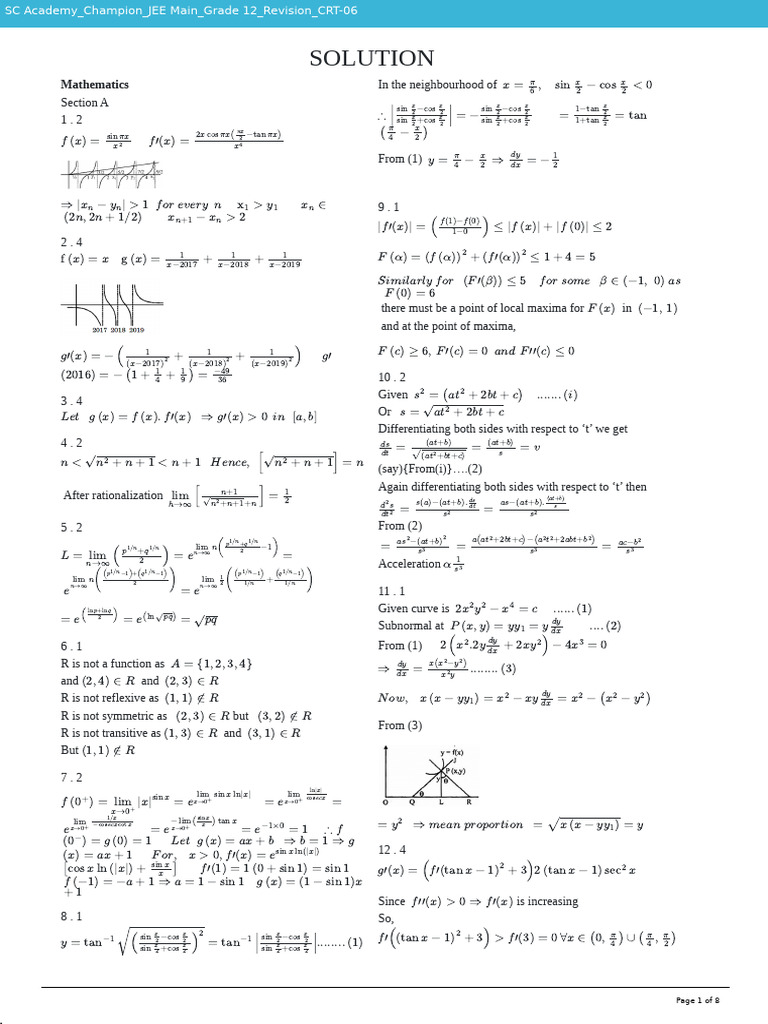 SC Academy_Champion_JEE Main_Grade 12_Revision_CRT-06
SOLUTION
Mathematics
Section A
1 . 2
f (x) = sin πx / x² f′(x) = 2x cos πx(πx/2 − tan πx) / x⁴
⇒ |xₙ − yₙ| > 1 for every n x₁ > y₁ xₙ ∈
(2n, 2n + 1/2) xₙ₊₁ − xₙ > 2
2 . 4
f (x) = x g (x) = 1/(x−2017) + 1/(x−2018) + 1/(x−2019)
2017 2018 2019
g′(x) = − (1/(x−2017)² + 1/(x−2018)² + 1/(x−2019)²) g′
(2016) = − (1 + 1/4 + 1/9) = −49/36
3 . 4
Let g (x) = f (x). f′(x) ⇒ g′(x) > 0 in [a, b]
4 . 2
n < √(n² + n + 1) < n + 1 Hence, [√(n² + n + 1)] = n
After rationalization lim h→∞ [(n+1)/(√(n²+n+1)+n)] = 1/2
5 . 2
L = lim n→∞ ((p^(1/n)+q^(1/n))/2) = e^(lim n→∞ n((p^(1/n)+q^(1/n))/2 −1)) =
e^(lim n→∞ n(((p^(1/n)−1)+(q^(1/n)−1))/2)) = e^(lim n→∞ 1/2((p^(1/n)−1)/(1/n) + (q^(1/n)−1)/(1/n)))
= e^((ln p+ln q)/2) = e^(ln √pq) = √pq
6 . 1
R is not a function as A = {1, 2, 3, 4}
and (2, 4) ∈ R and (2, 3) ∈ R
R is not reflexive as (1, 1) ∉ R
R is not symmetric as (2, 3) ∈ R but (3, 2) ∉ R
R is not transitive as (1, 3) ∈ R and (3, 1) ∈ R
But (1, 1) ∉ R
7 . 2
f (0⁺) = lim x→0⁺ |x|^(sin x) = e^(lim x→0⁺ sin x ln|x|) = e^(lim x→0⁺ ln|x|/cosecx) =
e^(lim x→0⁺ (1/x)/(−cosecx cot x)) = e^(−lim x→0⁺ (sin x/x) tan x) = e^(−1×0) = 1 ∴ f
(0⁻) = g (0) = 1 Let g (x) = ax + b ⇒ b = 1 ⇒ g
(x) = ax + 1 For, x > 0, f′(x) = e^(sin x ln(|x|))
[cos x ln (|x|) + sin x/x] f′(1) = 1 (0 + sin 1) = sin 1
f (−1) = −a + 1 ⇒ a = 1 − sin 1 g (x) = (1 − sin 1)x
+ 1
8 . 1
y = tan⁻¹ √((sin x/2 −cos x/2)/(sin x/2 +cos x/2))² = tan⁻¹ |(sin x/2 −cos x/2)/(sin x/2 +cos x/2)|........ (1)
In the neighbourhood of x = π/6, sin x/2 − cos x/2 < 0
∴ |(sin x/2 −cos x/2)/(sin x/2 +cos x/2)| = −(sin x/2 −cos x/2)/(sin x/2 +cos x/2) = (1−tan x/2)/(1+tan x/2) = tan
(π/4 − x/2)
From (1) y = π/4 − x/2 ⇒ dy/dx = −1/2
9 . 1
|f′(x)| = ((f(1)−f(0))/(1−0)) ≤ |f (x)| + |f (0)| ≤ 2
F (α) = (f (α))² + (f′(α))² ≤ 1 + 4 = 5
Similarly for (F′(β)) ≤ 5 for some β ∈ (−1, 0) as
F (0) = 6
there must be a point of local maxima for F (x) in (−1, 1)
and at the point of maxima,
F (c) ≥ 6, F′(c) = 0 and F′′(c) ≤ 0
10 . 2
Given s² = (at² + 2bt + c) ....... (i)
Or s = √(at² + 2bt + c)
Differentiating both sides with respect to ‘t’ we get
ds/dt = (at+b)/√(at²+bt+c) = (at+b)/s = v
(say){From(i)}….(2)
Again differentiating both sides with respect to ‘t’ then
d²s/dt² = (s(a)−(at+b).ds/dt)/s² = (as−(at+b).(at+b)/s)/s²
From (2)
= (as²−(at+b)²)/s³ = (a(at²+2bt+c)−(a²t²+2abt+b²))/s³ = (ac−b²)/s³
Acceleration α 1/s³
11 . 1
Given curve is 2x²y² − x⁴ = c ...... (1)
Subnormal at P (x, y) = yy₁ = y dy/dx .... (2)
From (1) 2 (x².2y dy/dx + 2xy²) − 4x³ = 0
⇒ dy/dx = x(x²−y²)/x²y ........ (3)
Now, x (x − yy₁) = x² − xy dy/dx = x² − (x² − y²)
From (3)
y = f(x)
P (x,y)
y θ
θ
O Q L R
= y² ⇒ mean proportion = √(x (x − yy₁)) = y
12 . 4
g′(x) = (f′(tan x − 1)² + 3)2 (tan x − 1) sec² x
Since f′′(x) > 0 ⇒ f′(x) is increasing
So,
f′((tan x − 1)² + 3) > f′(3) = 0 ∀x ∈ (0, π/4) ∪ (π/4, π/2)
Page 1 of 8